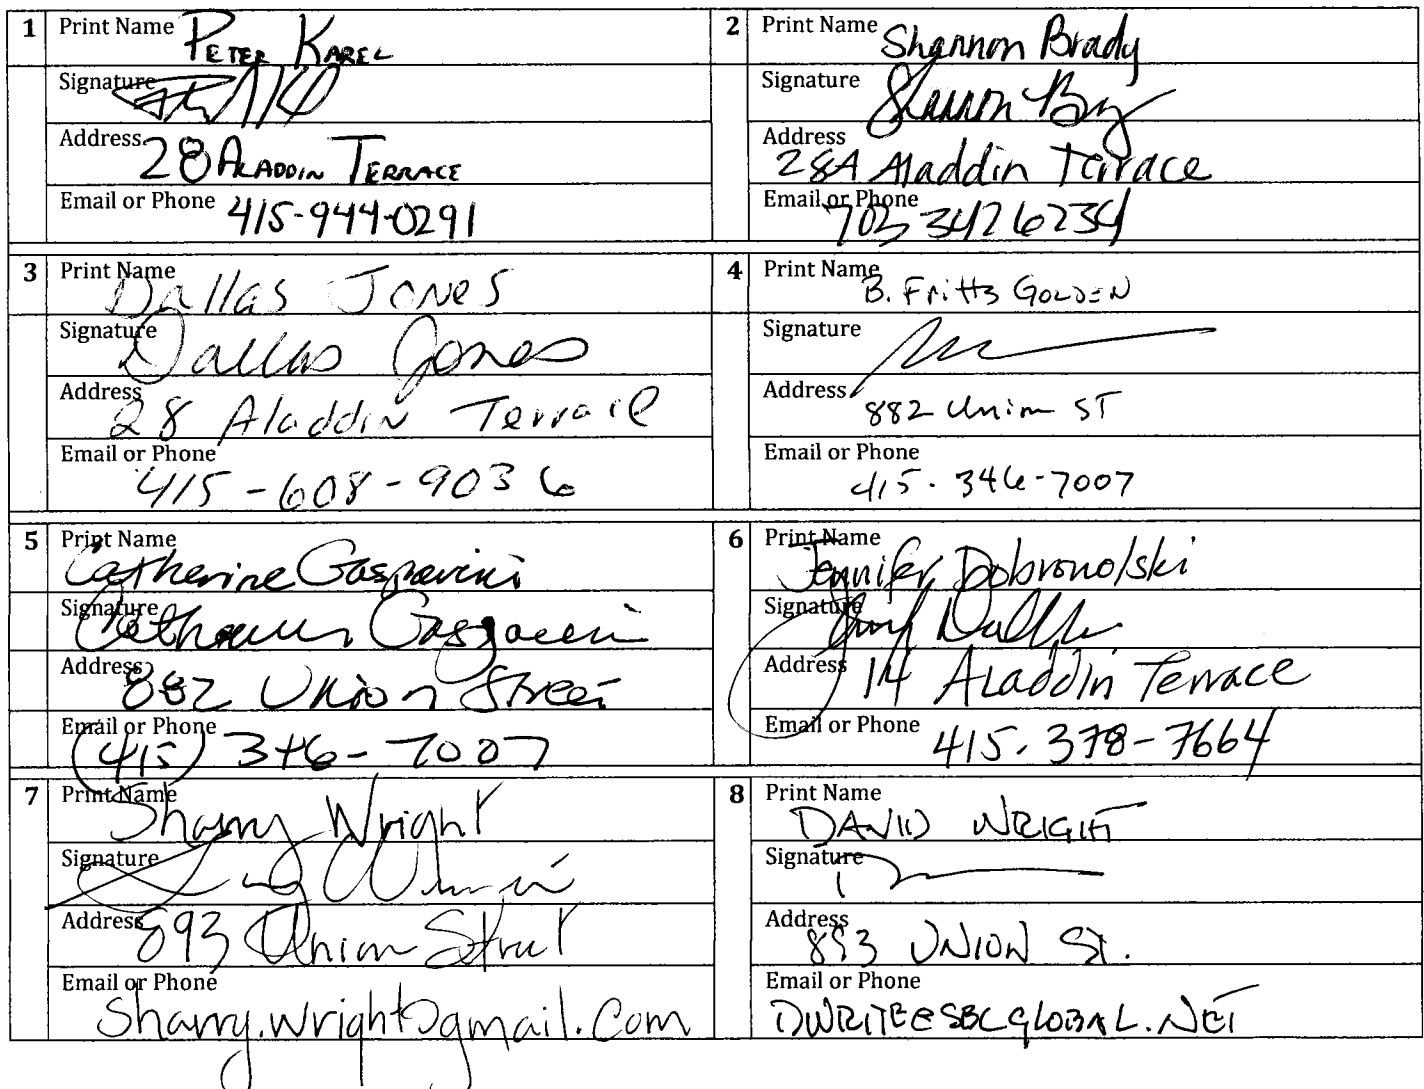 1 Print Name PETER KAREL
Signature
Address 28 ALADDIN TERRACE
Email or Phone 415-944-0291
2 Print Name Shannon Brady
Signature Shannon
Address 28A Aladdin Terrace
Email or Phone 703 3426234
3 Print Name Dallas Jones
Signature Dallas Jones
Address 28 Aladdin Terrace
Email or Phone 415-608-9036
4 Print Name B. Fritts GOLDEN
Signature
Address 882 Union ST
Email or Phone 415. 346-7007
5 Print Name Catherine Gasparini
Signature Catherine Gasparini
Address 882 Union Street
Email or Phone (415) 346-7007
6 Print Name Jennifer Dobrowolski
Signature
Address 14 Aladdin Terrace
Email or Phone 415.378-7664
7 Print Name Sharry Wright
Signature
Address 893 Union Street
Email or Phone sharry.wright@gmail.com
8 Print Name DAVID WRIGHT
Signature
Address 893 UNION St.
Email or Phone DWRITE@SBCGLOBAL.NET